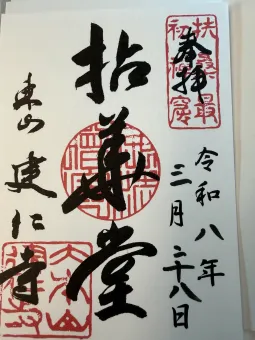 奉拝
扶桑最
初禅窟
令和八年
三月二十八日
拈華堂
東山 建仁寺